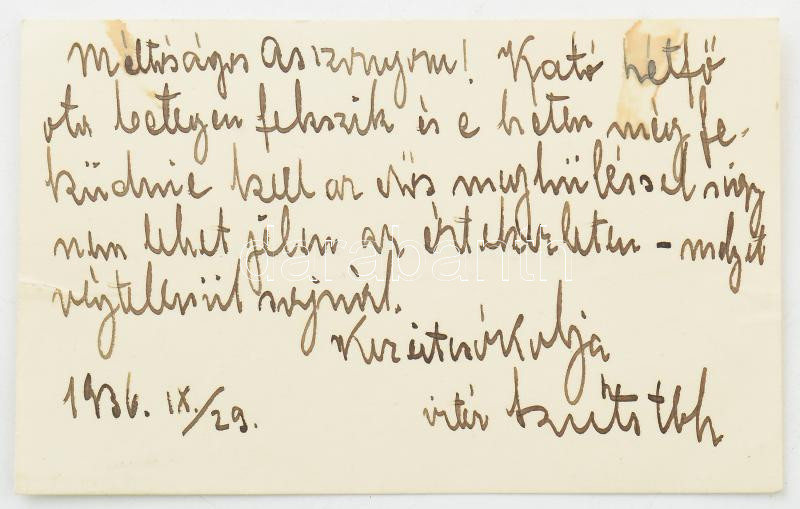 Méltóságos Asszonyom! Kató hétfő
óta betegen fekszik és e héten még fe-
küdnie kell az erős meghűléssel s így
nem lehet jelen az értekezleten – melyet
végtelenül sajnál.
Kezeit csókolja
1936. IX./29. vitéz
darabanth